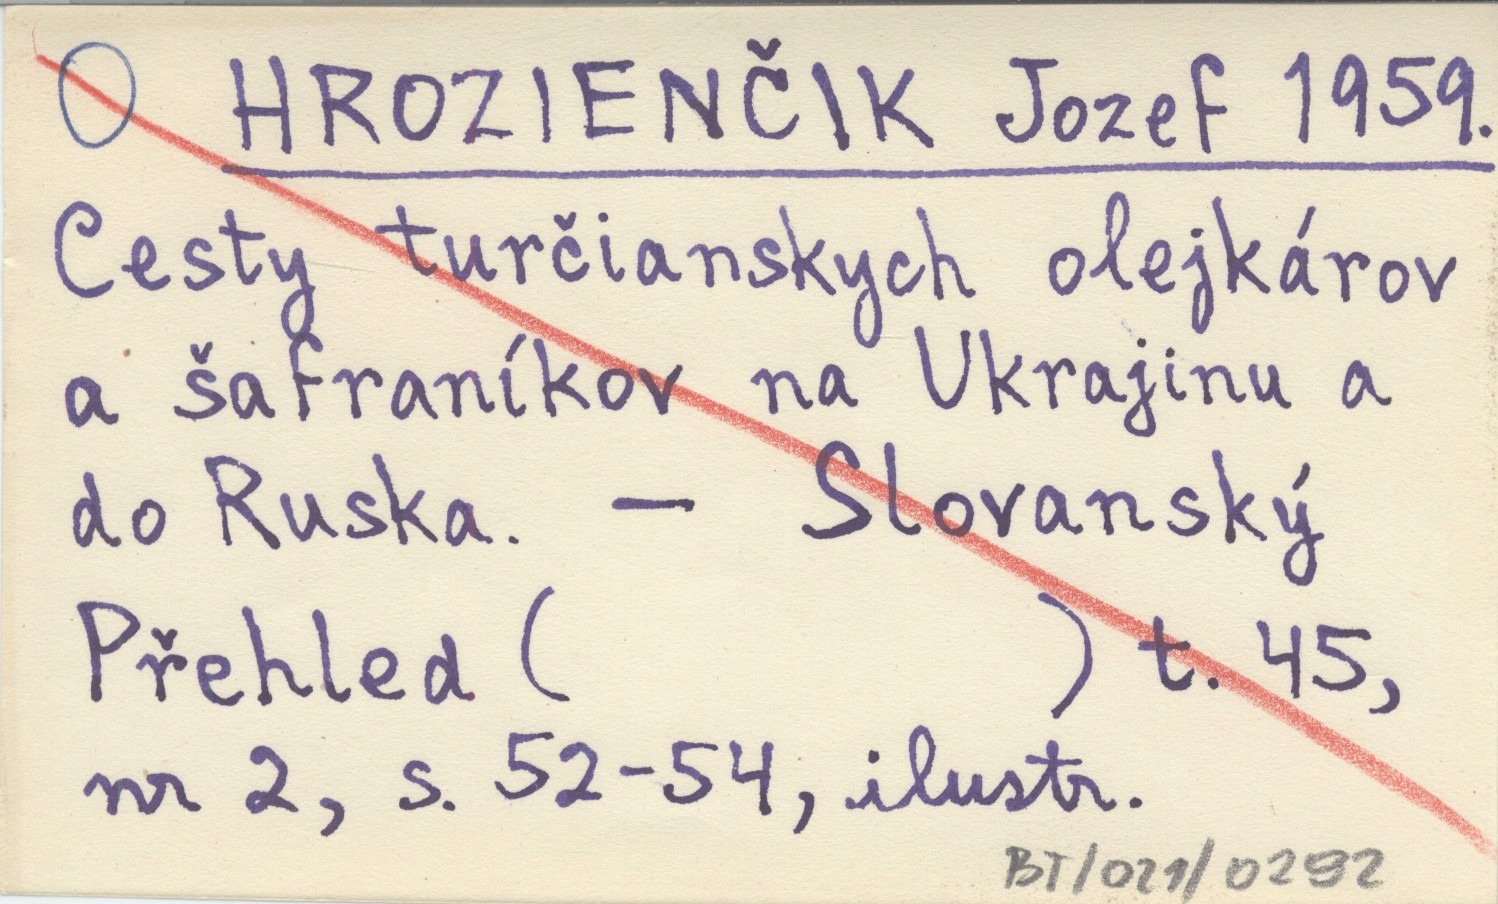 O HROZIENČIK Jozef 1959.
Cesty turčianskych olejkárov
a šafraníkov na Ukrajinu a
do Ruska. – Slovanský
Přehled (               ) t. 45,
nr 2, s. 52-54, ilustr.
BT/021/0292